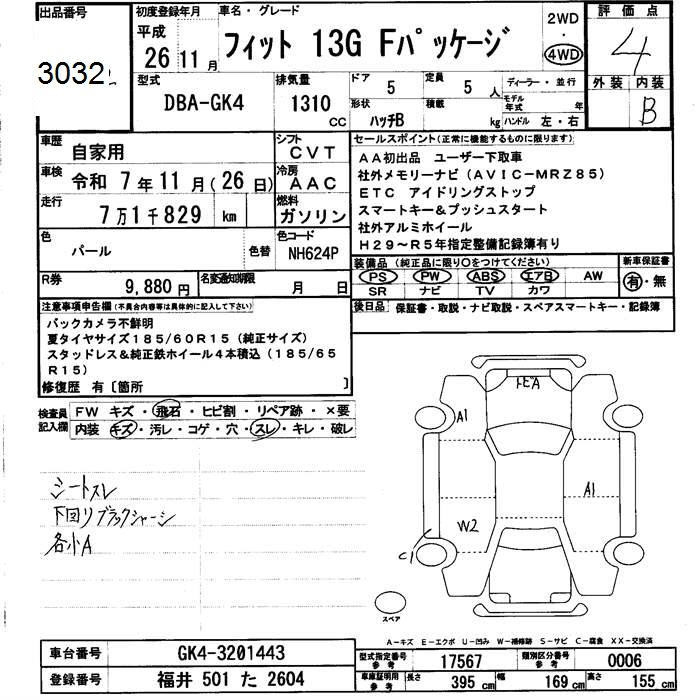 出品番号
3032
初度登録年月
平成
26年11月
車名・グレード
フィット 13G Fパッケージ
2WD
・
4WD
評価点
4
型式
DBA-GK4
排気量
1310
CC
ドア
5
定員
5
人
形状
ハッチB
積載
kg
ディーラー・並行
モデル年式
年
ハンドル 左・右
外装 内装
B
車歴
自家用
シフト
CVT
車検
令和 7年11月(26日)
冷房
AAC
走行
7万1千829 km
燃料
ガソリン
色
パール
色替
色コード
NH624P
R券
9,880円
名変通知期限
月 日
セールスポイント(正常に機能するものに限ります)
AA初出品 ユーザー下取車
社外メモリーナビ(AVIC-MRZ85)
ETC アイドリングストップ
スマートキー&プッシュスタート
社外アルミホイール
H29~R5年指定整備記録簿有り
装備品(純正品に限り○をつけてください)
PS PW ABS エアB AW
SR ナビ TV カワ
新車保証書
有・無
後日品 保証書・取説・ナビ取説・スペアスマートキー・記録簿
注意事項申告欄(不具合内容等は具体的に記入して下さい)
バックカメラ不鮮明
夏タイヤサイズ185/60R15(純正サイズ)
スタッドレス&純正鉄ホイール4本積込(185/65
R15)
修復歴 有〔箇所 〕
検査員
記入欄
FW キズ・飛石・ヒビ割・リペア跡・×要
内装 キズ・汚レ・コゲ・穴・スレ・キレ・破レ
シートスレ
下回りブラックシャーシ
各小A
トビA
A1
A1
W2
C1
スペア
A-キズ E-エクボ U-凹み W-補修跡 S-サビ C-腐食 XX-交換済
車台番号
GK4-3201443
登録番号
福井 501 た 2604
型式指定番号
参考
17567
類別区分番号
参考
0006
車庫証明用
参考
長さ
395 cm
幅
169 cm
高さ
155 cm